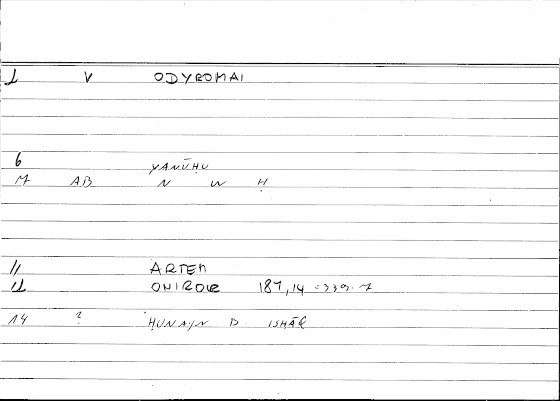 1 V ODYROMAI
6 YANŪḤU
M AB N W Ḥ
11 ARTEM
12 ONIROCR 187,14 = 339.7
14 ? ḤUNAYN B ISḤĀQ